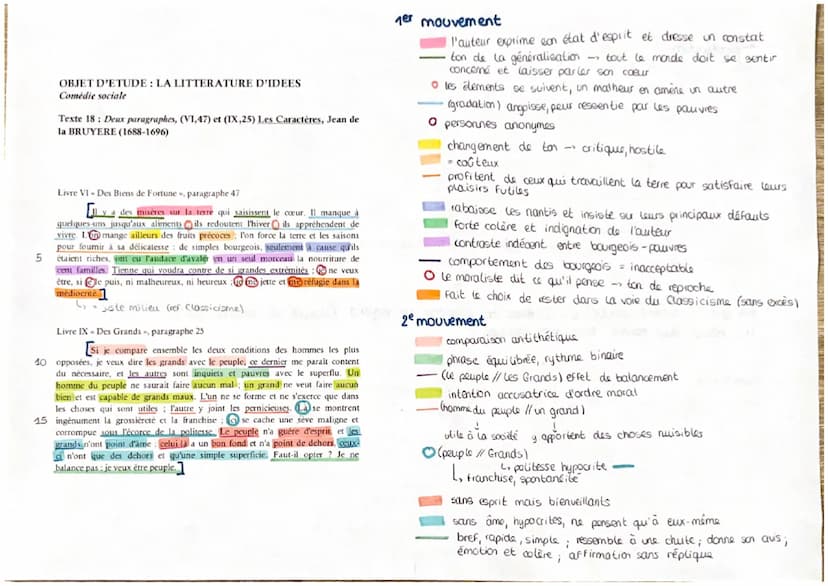 OBJET D'ETUDE : LA LITTERATURE D'IDEES
Comédie sociale
Texte 18 : Deux paragraphes, (VI,47) et (IX,25) Les Caractères, Jean de
la BRUYERE (1688-1696)
Livre VI « Des Biens de Fortune », paragraphe 47
[Il y a des misères sur la terre qui saisissent le cœur. Il manque à
quelques-uns jusqu'aux aliments ; ils redoutent l'hiver ; ils appréhendent de
vivre. L'on mange ailleurs des fruits précoces ; l'on force la terre et les saisons
pour fournir à sa délicatesse : de simples bourgeois, seulement à cause qu'ils
5 étaient riches, ont eu l'audace d'avaler en un seul morceau la nourriture de
cent familles. Tienne qui voudra contre de si grandes extrémités : je ne veux
être, si je le puis, ni malheureux, ni heureux ; je me jette et me réfugie dans la
médiocrité.]
↳ = juste milieu (ref Classicisme)
Livre IX « Des Grands », paragraphe 25
[Si je compare ensemble les deux conditions des hommes les plus
10 opposées, je veux dire les grands avec le peuple, ce dernier me paraît content
du nécessaire, et les autres sont inquiets et pauvres avec le superflu. Un
homme du peuple ne saurait faire aucun mal ; un grand ne veut faire aucun
bien et est capable de grands maux. L'un ne se forme et ne s'exerce que dans
les choses qui sont utiles ; l'autre y joint les pernicieuses. Là se montrent
15 ingénument la grossièreté et la franchise ; ici se cache une sève maligne et
corrompue sous l'écorce de la politesse. Le peuple n'a guère d'esprit, et les
grands n'ont point d'âme : celui-là a un bon fond et n'a point de dehors, ceux-
ci n'ont que des dehors et qu'une simple superficie. Faut-il opter ? Je ne
balance pas : je veux être peuple.]
1er mouvement
l'auteur exprime son état d'esprit et dresse un constat
ton de la généralisation → tout le monde doit se sentir
concerné et laisser parler son cœur
les éléments se suivent, un malheur en amène un autre
(gradation) angoisse, peur ressentie par les pauvres
personnes anonymes
changement de ton → critique, hostile
= coûteux
profitent de ceux qui travaillent la terre pour satisfaire leurs
plaisirs futiles
rabaisse les nantis et insiste su leurs principaux défauts
forte colère et indignation de l'auteur
contraste indécent entre bourgeois - pauvres
comportement des bourgeois = inacceptable
le moraliste dit ce qu'il pense → ton de reproche
Fait le choix de rester dans la voie du Classicisme (sans excès)
2e mouvement
comparaison antithétique
phrase équilibrée, rythme binaire
(le peuple // les Grands) effet de balancement
intention accusatrice d'ordre moral
(homme du peuple // un grand)
utile à la société y apportent des choses nuisibles
(peuple // Grands)
↳ politesse hypocrite
↳ franchise, spontanéité
sans esprit mais bienveillants
sans âme, hypocrites, ne pensent qu'à eux-même
bref, rapide, simple ; ressemble à une chute ; donne son avis ;
émotion et colère ; affirmation sans réplique